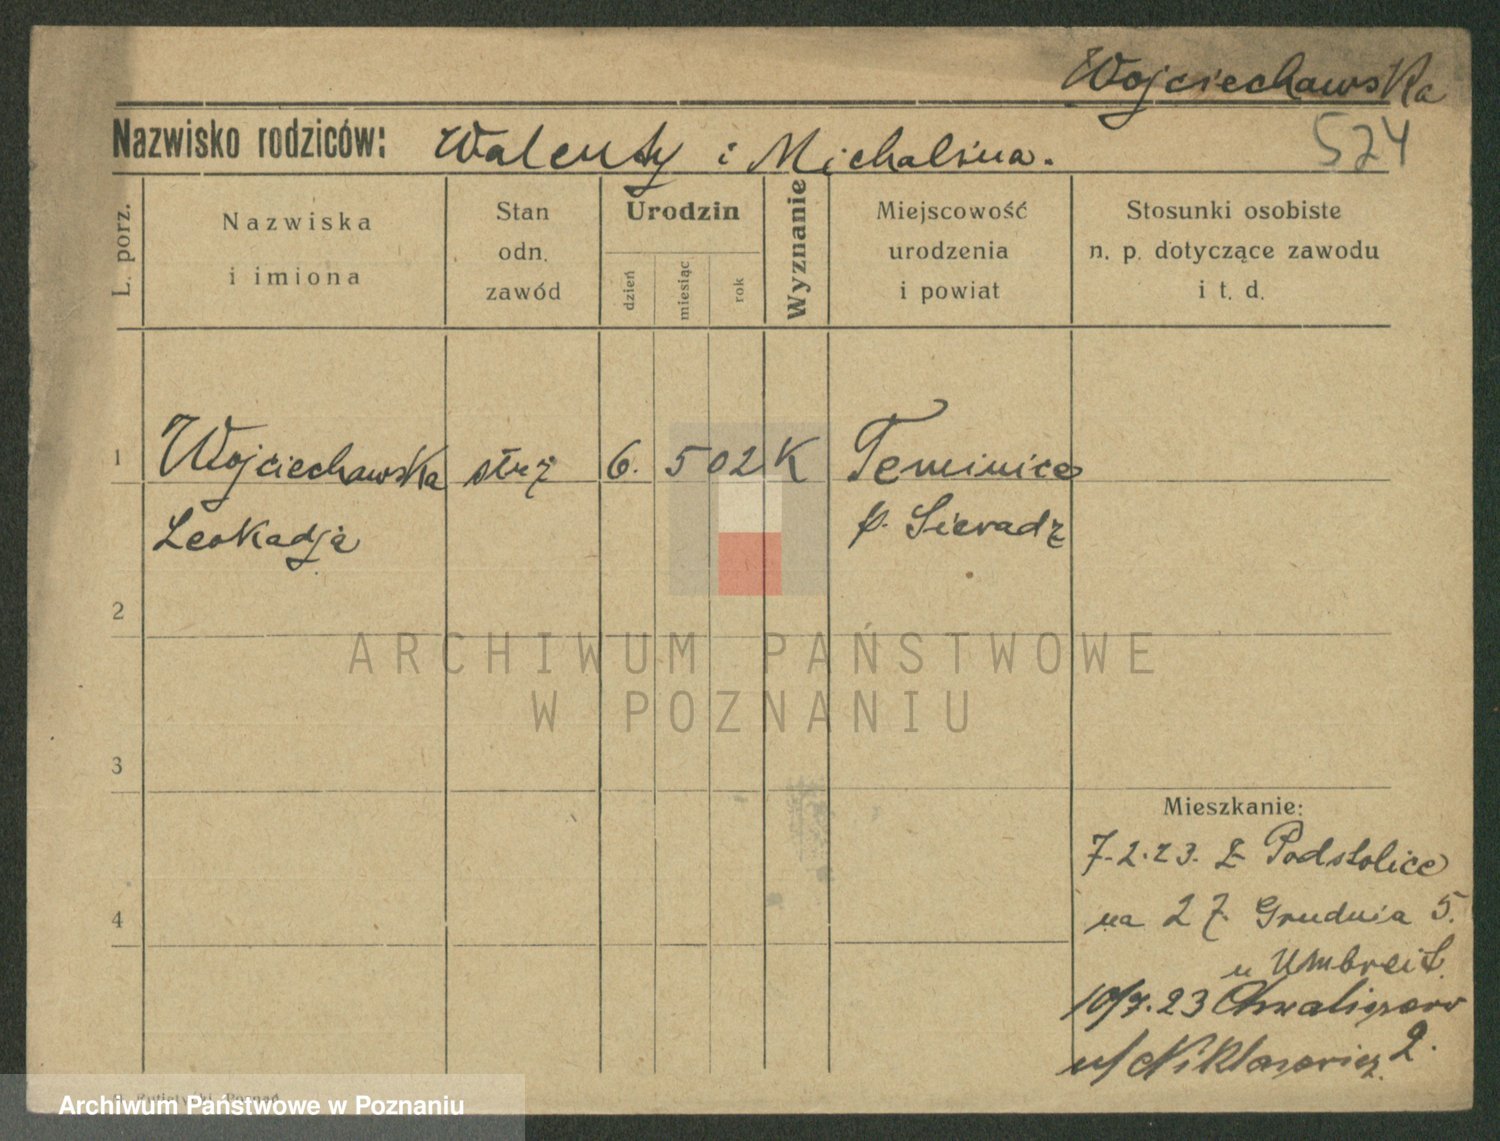 Wojciechowska
Nazwisko rodziców: Walenty i Michalina.
524
L. porz.
Nazwiska
i imiona
Stan
odn.
zawód
Urodzin
dzień
miesiąc
rok
Wyznanie
Miejscowość
urodzenia
i powiat
Stosunki osobiste
n. p. dotyczące zawodu
i t. d.
1 Wojciechowska 6. 5 02 K Teminice
Leokadja p. Sieradz
2
ARCHIWUM PAŃSTWOWE
W POZNANIU
3
Mieszkanie:
7.2.23. z Podstolice
4
na 27. Grudnia 5.
u Umbreit
10/7.23
2.
Archiwum Państwowe w Poznaniu